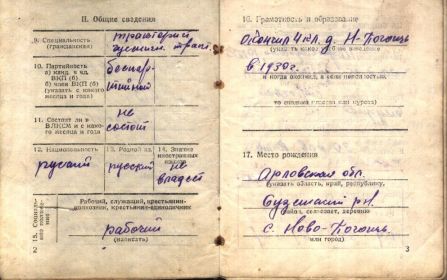 II. Общие сведения
9. Специальность
(гражданская)
тракторист
10. Партийность
а) канд. в чл.
ВКП (б)
б) член ВКП (б)
(указать с какого
месяца и года)
беспар-
тийный
11. Состоит ли в
ВЛКСМ и с како-
го месяца и года
не
состоит
12. Национальность
русский
13. Родной яз.
русский
14. Знание
иностранных
языков
не
владеет
15. Социаль-
ное положе-
ние
Рабочий, служащий, крестьянин-
колхозник, крестьянин-единоличник
рабочий
(написать)
2
16. Грамотность и образование
Окончил 4 кл. д. Н-
(указать какое учебное заведение
в 1930 г.
и когда окончил, а если неполностью,
то сколько классов или курсов)
17. Место рождения
Орловская обл.
(указать область, край, республику,
р-н.
район, сельсовет, деревню
с. Ново-
или город)
3